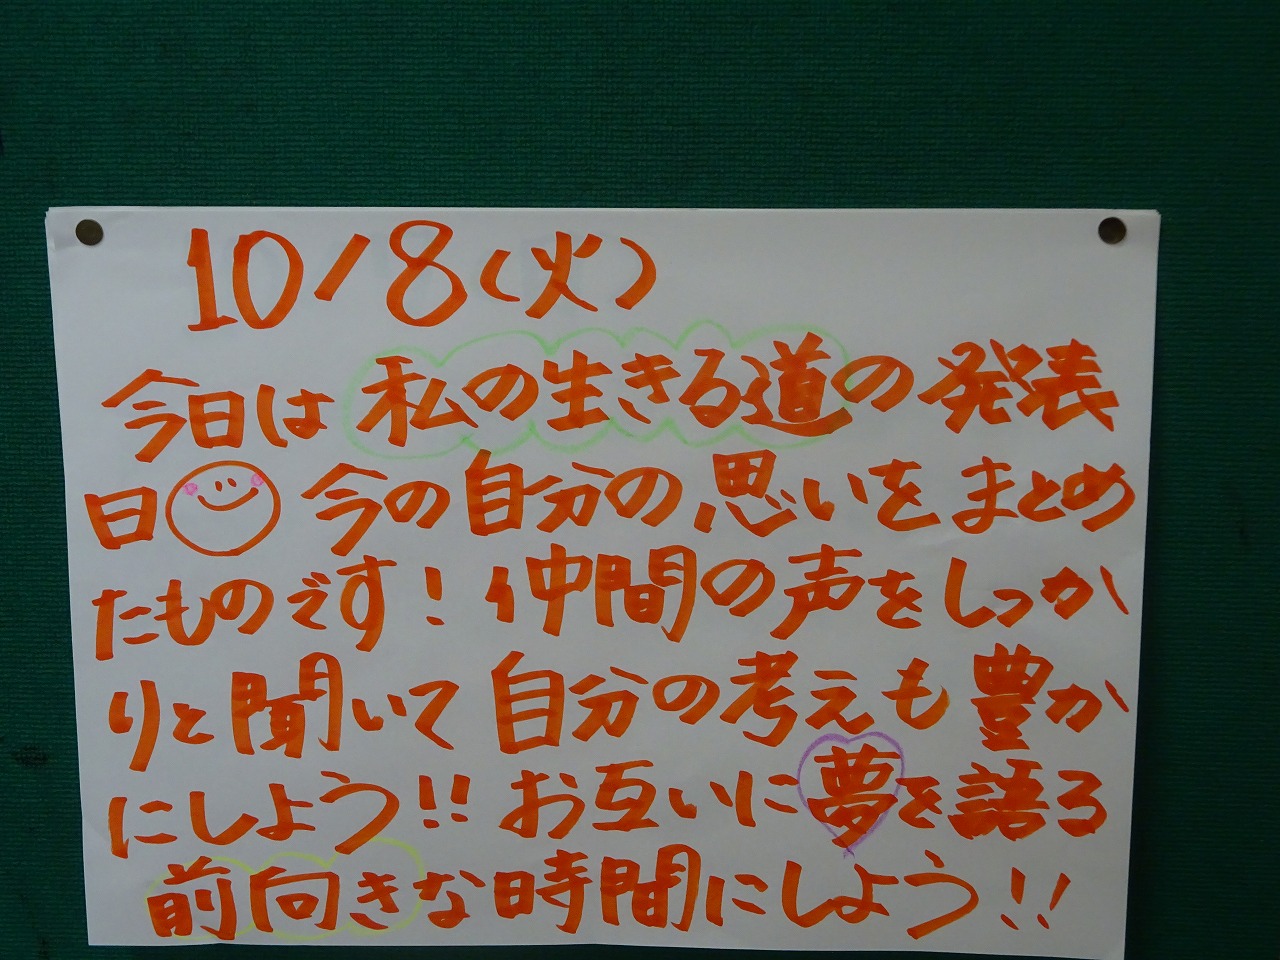 10/8(火)
今日は私の生きる道の発表
日 今の自分の思いをまとめ
たものです! 仲間の声をしっか
りと聞いて自分の考えも豊か
にしよう!! お互いに夢を語る
前向きな時間にしよう!!